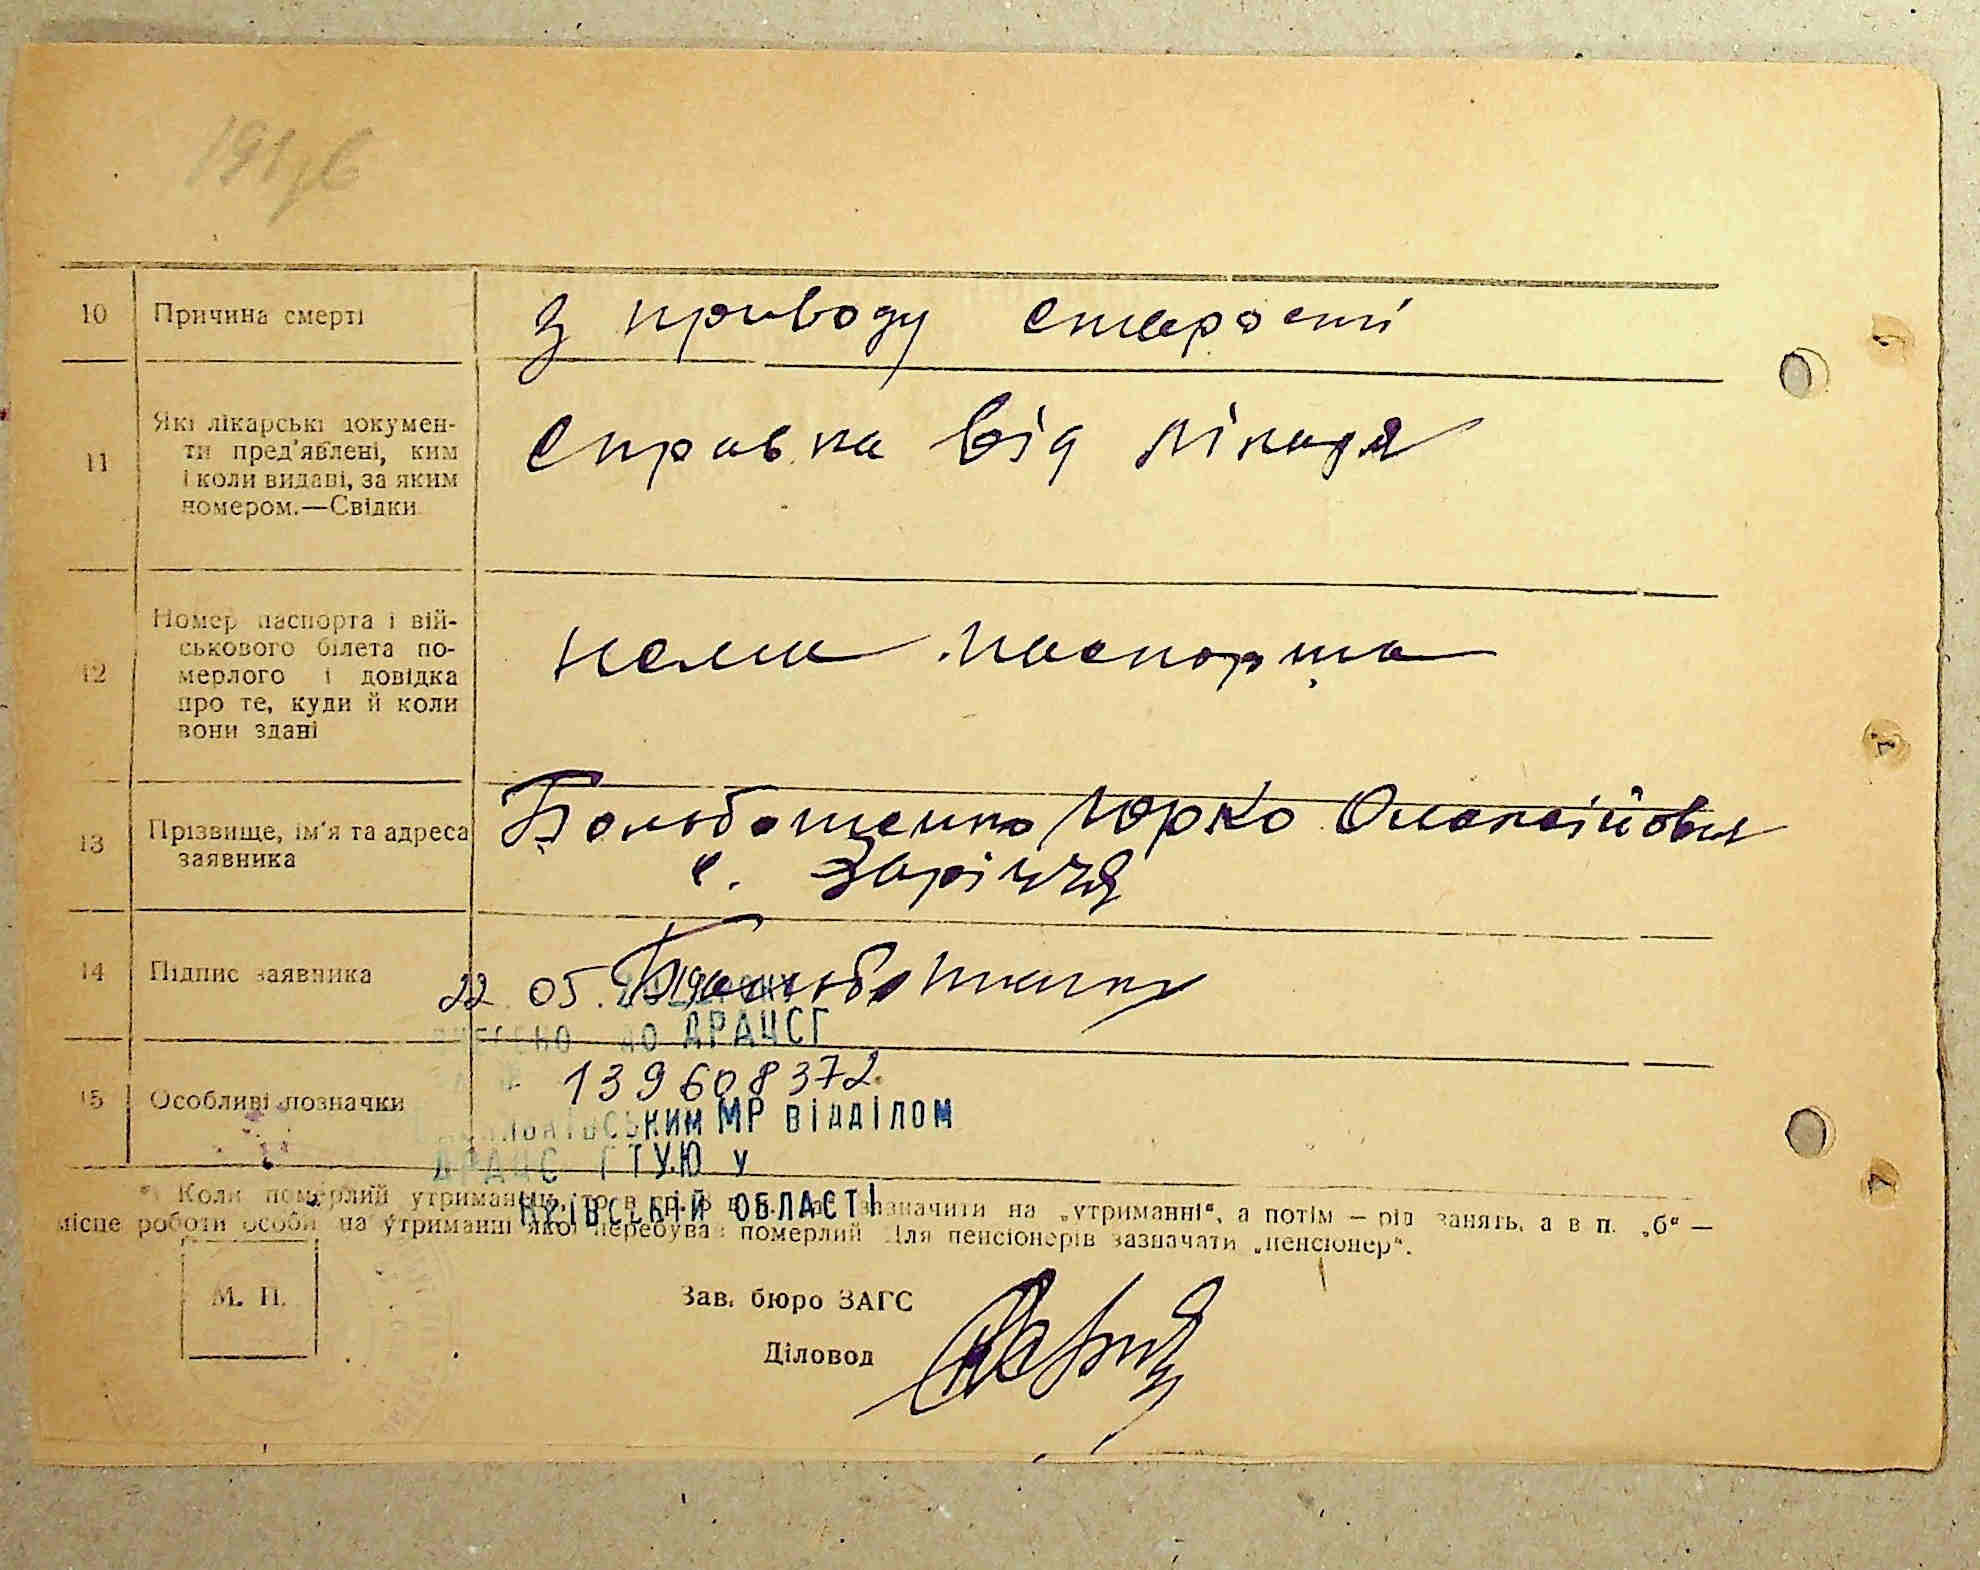 10 Причина смерті з приводу старости
11 Які лікарські докумен-
ти пред'явлені, ким
і коли видані, за яким
номером.—Свідки
справка від лікаря
12 Номер паспорта і вій-
ськового білета по-
мерлого і довідка
про те, куди й коли
вони здані
нема паспорта
13 Прізвище, ім'я та адреса
заявника
Юрко Олексійович
с. Заріччя
14 Підпис заявника
22 05.
ДО ДРАЦСГ
139608372
15 Особливі позначки
МР ВІДДІЛОМ
ДРАЦС ГТУЮ У
КИЇВСЬКІЙ ОБЛАСТІ
Коли померлий
зазначити на „утриманні“, а потім – рід занять, а в п. „б“ —
місце роботи особи на утриманні якої перебував померлий Для пенсіонерів зазначати „пенсіонер“.
М. П.
Зав. бюро ЗАГС
Діловод